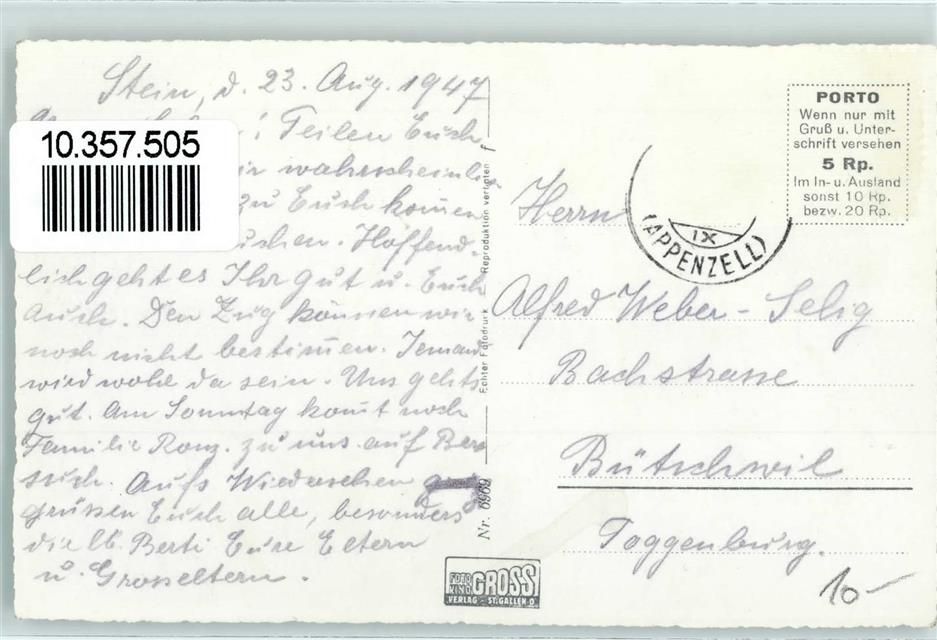 Stein, d. 23. Aug. 1947
! Teilen Euch
wahrscheinli
zu Euch komen
suchen. Hoffend-
lich geht es Ihr gut u. Euch
auch. Den Zug können wir
noch nicht bestimen. Jemand
wird wohl da sein. Uns gehts
gut. Am Sonntag komt noch
Familie zu uns auf Be-
such. Aufs Wiedersehen
grüssen Euch alle, besonders
die lb. Berti Eure Eltern
u. Grosseltern.
10.357.505
Echter Fotodruck Reproduktion verboten
Nr. 0969
FOTO KINO GROSS
VERLAG - ST. GALLEN O
PORTO
Wenn nur mit
Gruß u. Unter-
schrift versehen
5 Rp.
Im In- u. Ausland
sonst 10 Rp.
bezw. 20 Rp.
IX
(APPENZELL)
Herrn
Alfred Weber-Selig
Bachstrasse
Bütschwil
Toggenburg.
10-